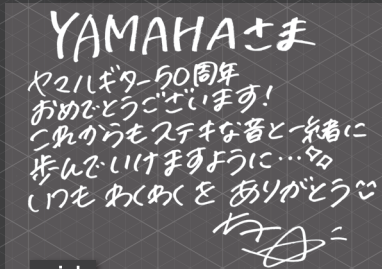 YAMAHAさま
ヤマハギター50周年
おめでとうございます!
これからもステキな音と一緒に
歩んでいけますように…
いつも わくわくを ありがとう